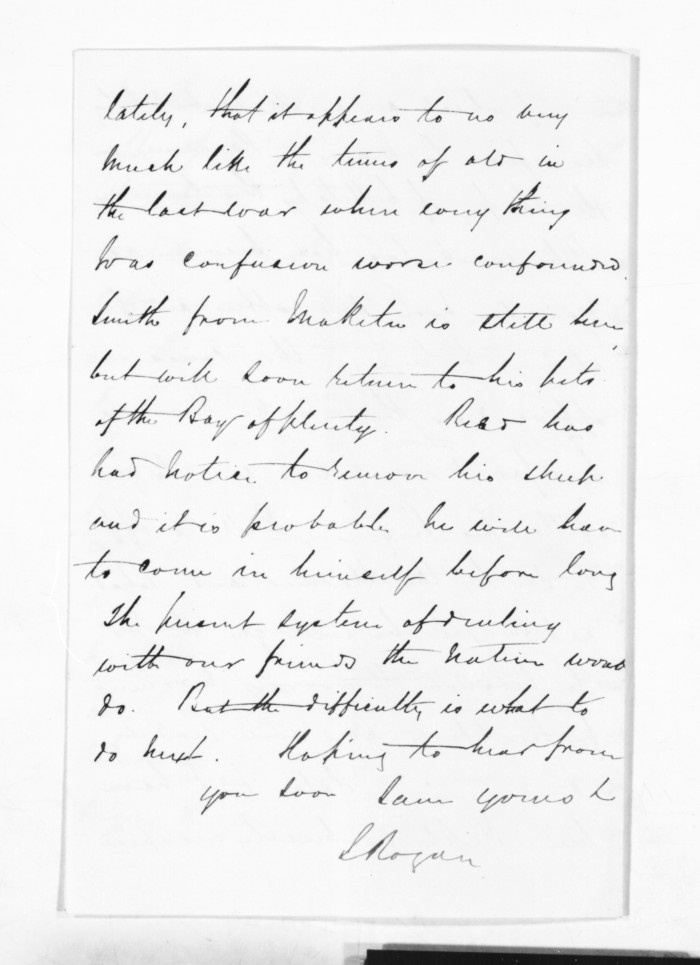 lately, that it appears to us very
much like the times of old in
the last war when every thing
was confusion worse confounded.
Smith from Maketu is still here,
but will soon return to his pets
of the Bay of plenty. Read has
had notice to remove his sheep
and it is probable he will have
to come in himself before long
The present system of dealing
with our friends the Natives wont
do. But the difficulty is what to
do next. Hoping to hear from
you soon I am yours
J Rogan